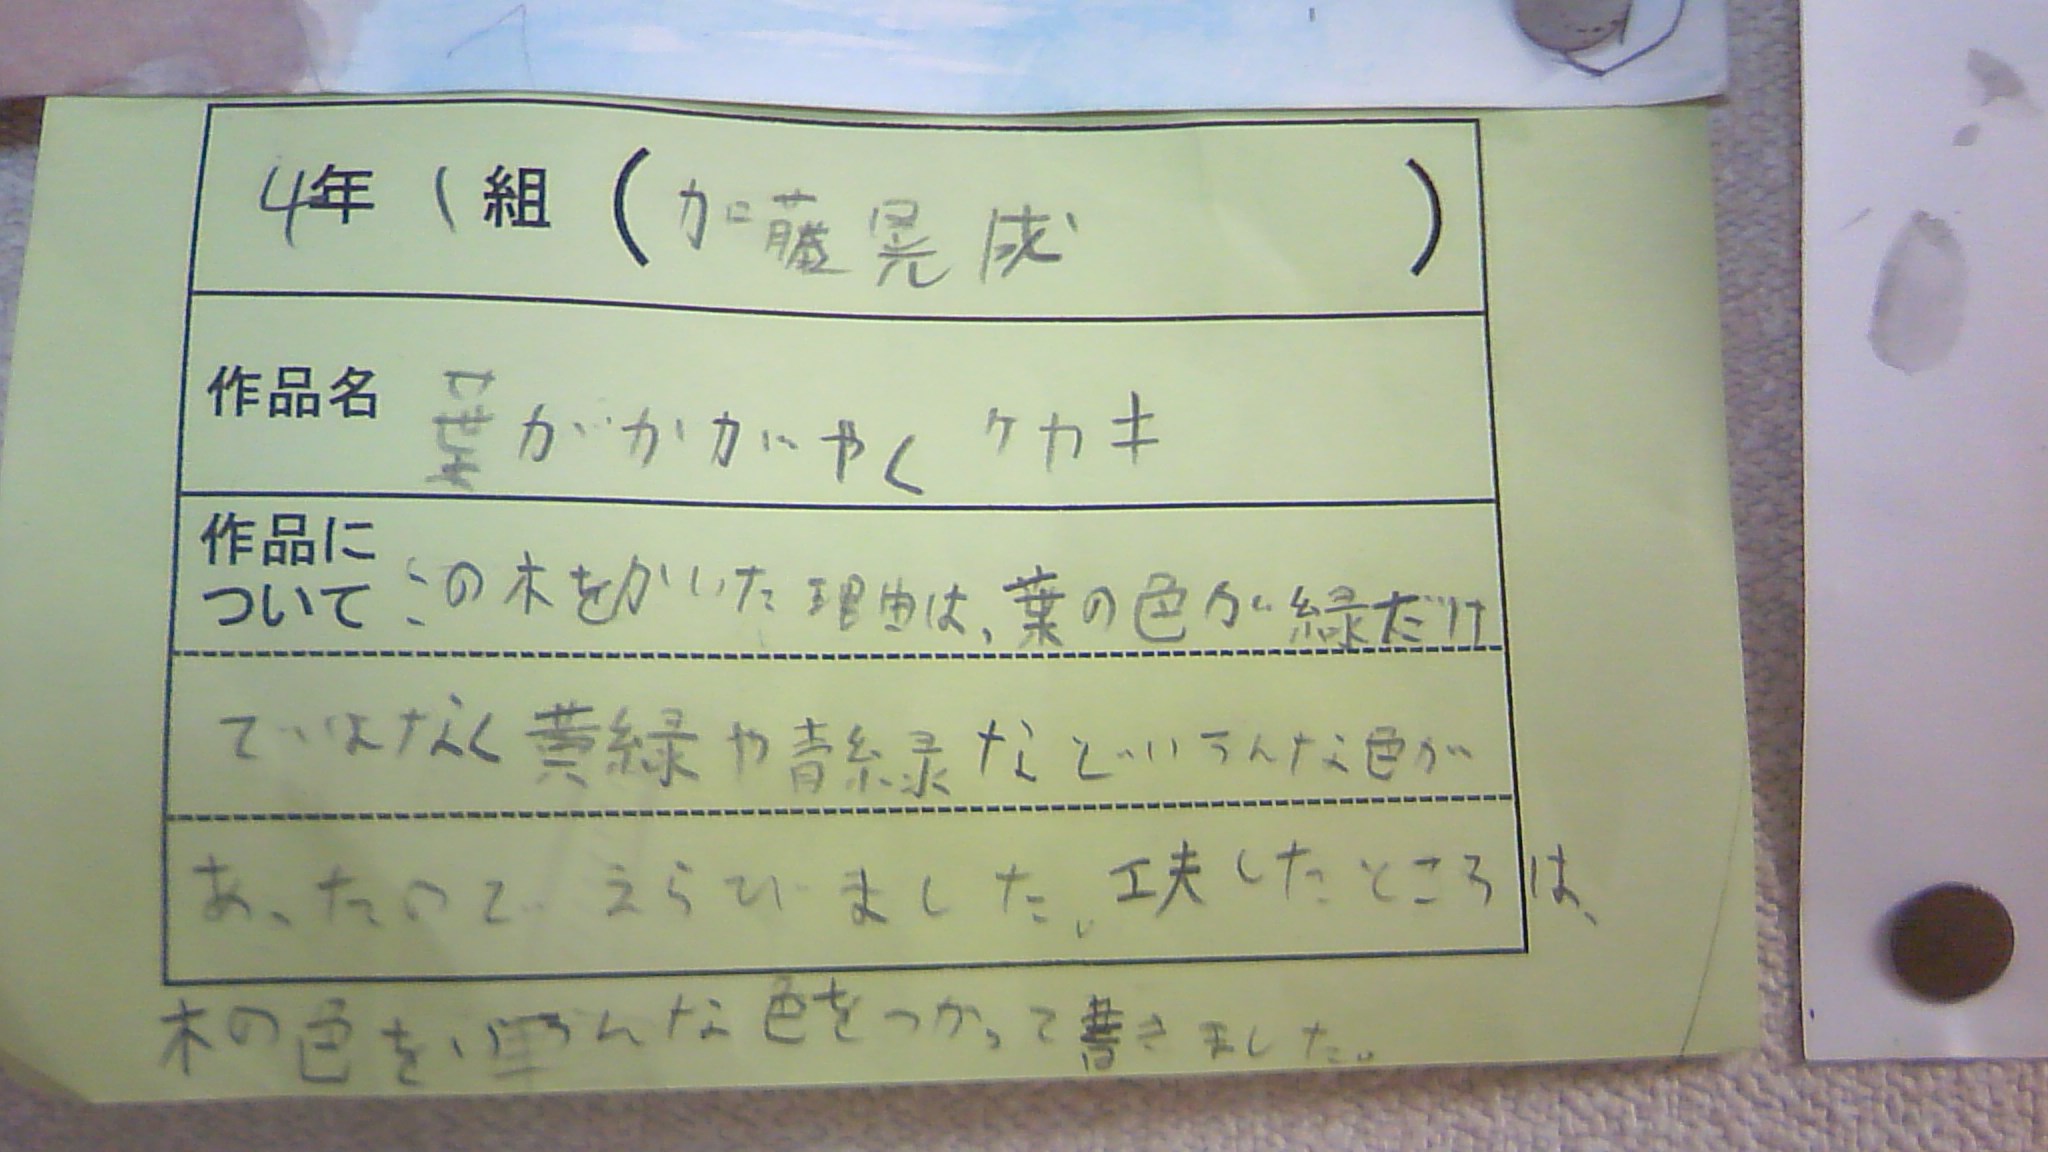 4年1組(加藤晃成)
作品名 葉がかがやくケカキ
作品に
ついて この木をかいた理由は、葉の色が緑だけ
ではなく黄緑や青緑などいろんな色が
あったのでえらびました。工夫したところは、
木の色をいろんな色をつかって書きました。